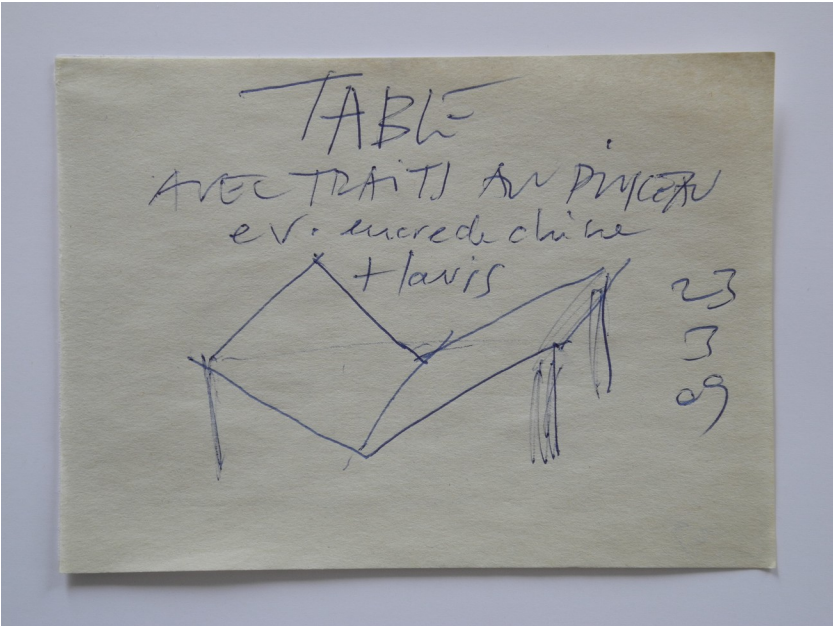 TABLE
AVEC TRAITS AU PINCEAU
ev. encre de chine
+ lavis
23
3
09